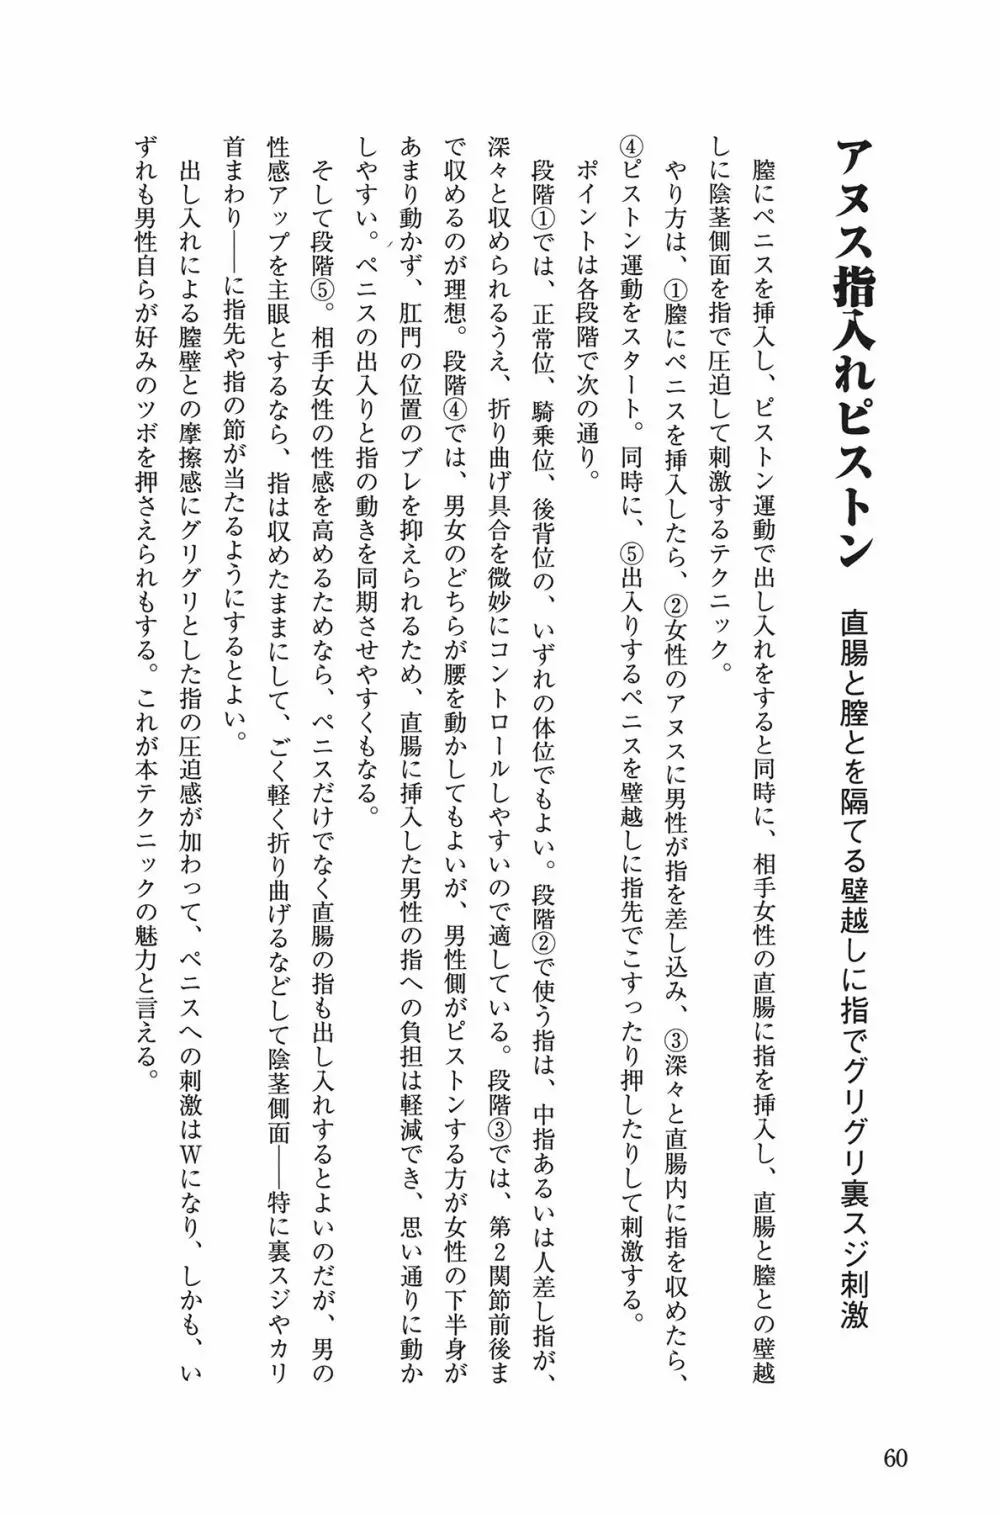 アヌス指入れピストン　直腸と膣とを隔てる壁越しに指でグリグリ裏スジ刺激
　膣にペニスを挿入し、ピストン運動で出し入れをすると同時に、相手女性の直腸に指を挿入し、直腸と膣との壁越
しに陰茎側面を指で圧迫して刺激するテクニック。
　やり方は、①膣にペニスを挿入したら、②女性のアヌスに男性が指を差し込み、③深々と直腸内に指を収めたら、
④ピストン運動をスタート。同時に、⑤出入りするペニスを壁越しに指先でこすったり押したりして刺激する。
　ポイントは各段階で次の通り。
　段階①では、正常位、騎乗位、後背位の、いずれの体位でもよい。段階②で使う指は、中指あるいは人差し指が、
深々と収められるうえ、折り曲げ具合を微妙にコントロールしやすいので適している。段階③では、第2関節前後ま
で収めるのが理想。段階④では、男女のどちらが腰を動かしてもよいが、男性側がピストンする方が女性の下半身が
あまり動かず、肛門の位置のブレを抑えられるため、直腸に挿入した男性の指への負担は軽減でき、思い通りに動か
しやすい。ペニスの出入りと指の動きを同期させやすくもなる。
　そして段階⑤。相手女性の性感を高めるためなら、ペニスだけでなく直腸の指も出し入れするとよいのだが、男の
性感アップを主眼とするなら、指は収めたままにして、ごく軽く折り曲げるなどして陰茎側面――特に裏スジやカリ
首まわり――に指先や指の節が当たるようにするとよい。
　出し入れによる膣壁との摩擦感にグリグリとした指の圧迫感が加わって、ペニスへの刺激はWになり、しかも、い
ずれも男性自らが好みのツボを押さえられもする。これが本テクニックの魅力と言える。
60